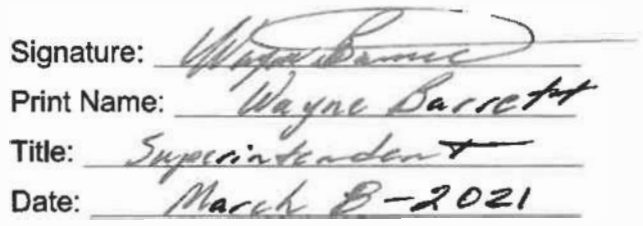 Signature: Wayne Barrett
Print Name: Wayne Barrett
Title: Superintendent
Date: March 8-2021